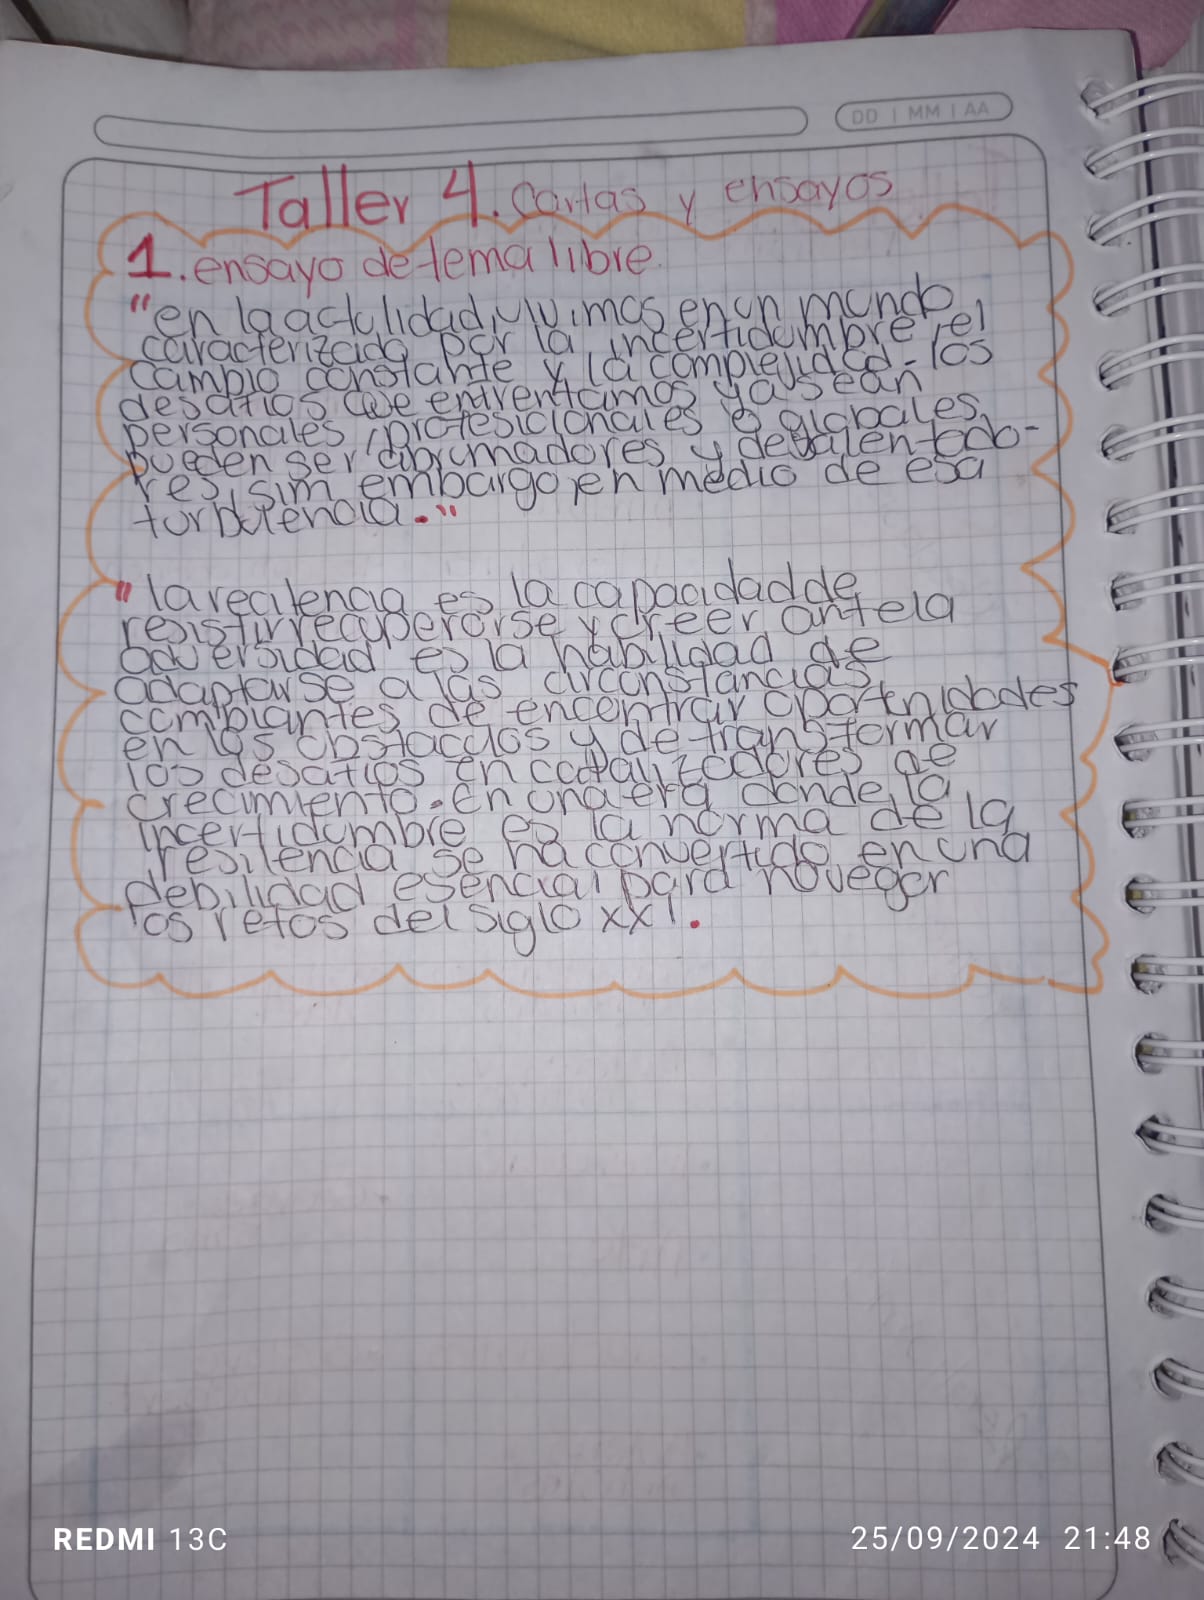 DD | MM | AA
Taller 4. Cartas y ensayos
1. ensayo de tema libre.
"en la actulidad, vivimos en un mundo
caracterizado por la incertidumbre, el
cambio constante y la complejidad - los
desafios que enfrentamos ya sean
personales, profesicionales o globales,
pueden ser abrumadores y desalentado-
res, sim embargo, en medio de esa
turbulencia."
"la recilencia es la capacidad de
resistir recuperarse y creer ante la
adversidad es la habilidad de
adaptarse a las circonstancias
cambiantes de encontrar oportnidades
en los obstaculos y de transformar
los desafios en catalizadores de
crecimiento. en una era donde la
incertidumbre es la norma de la
resilencia se ha convertido en una
debilidad esencial para naveger
los retos del siglo xxI.
REDMI 13C
25/09/2024 21:48